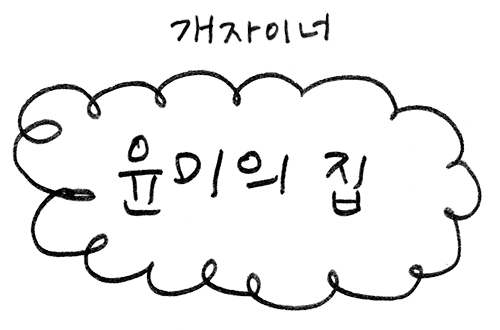 개자이너
윤미의 집